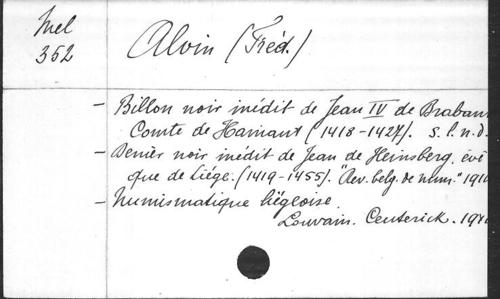 Mel
352
Alvin (Fréd.)
- Billon noir inédit de Jean IV de Braban
Comte de Hainaut (1418-1427). s.l.n.d.
- Denier noir inédit de Jean de Heinsberg, évê
que de Liége. (1419-1455). "Rev. belg. de num." 191
- Numismatique liégeoise.
Louvain. Ceuterick. 19